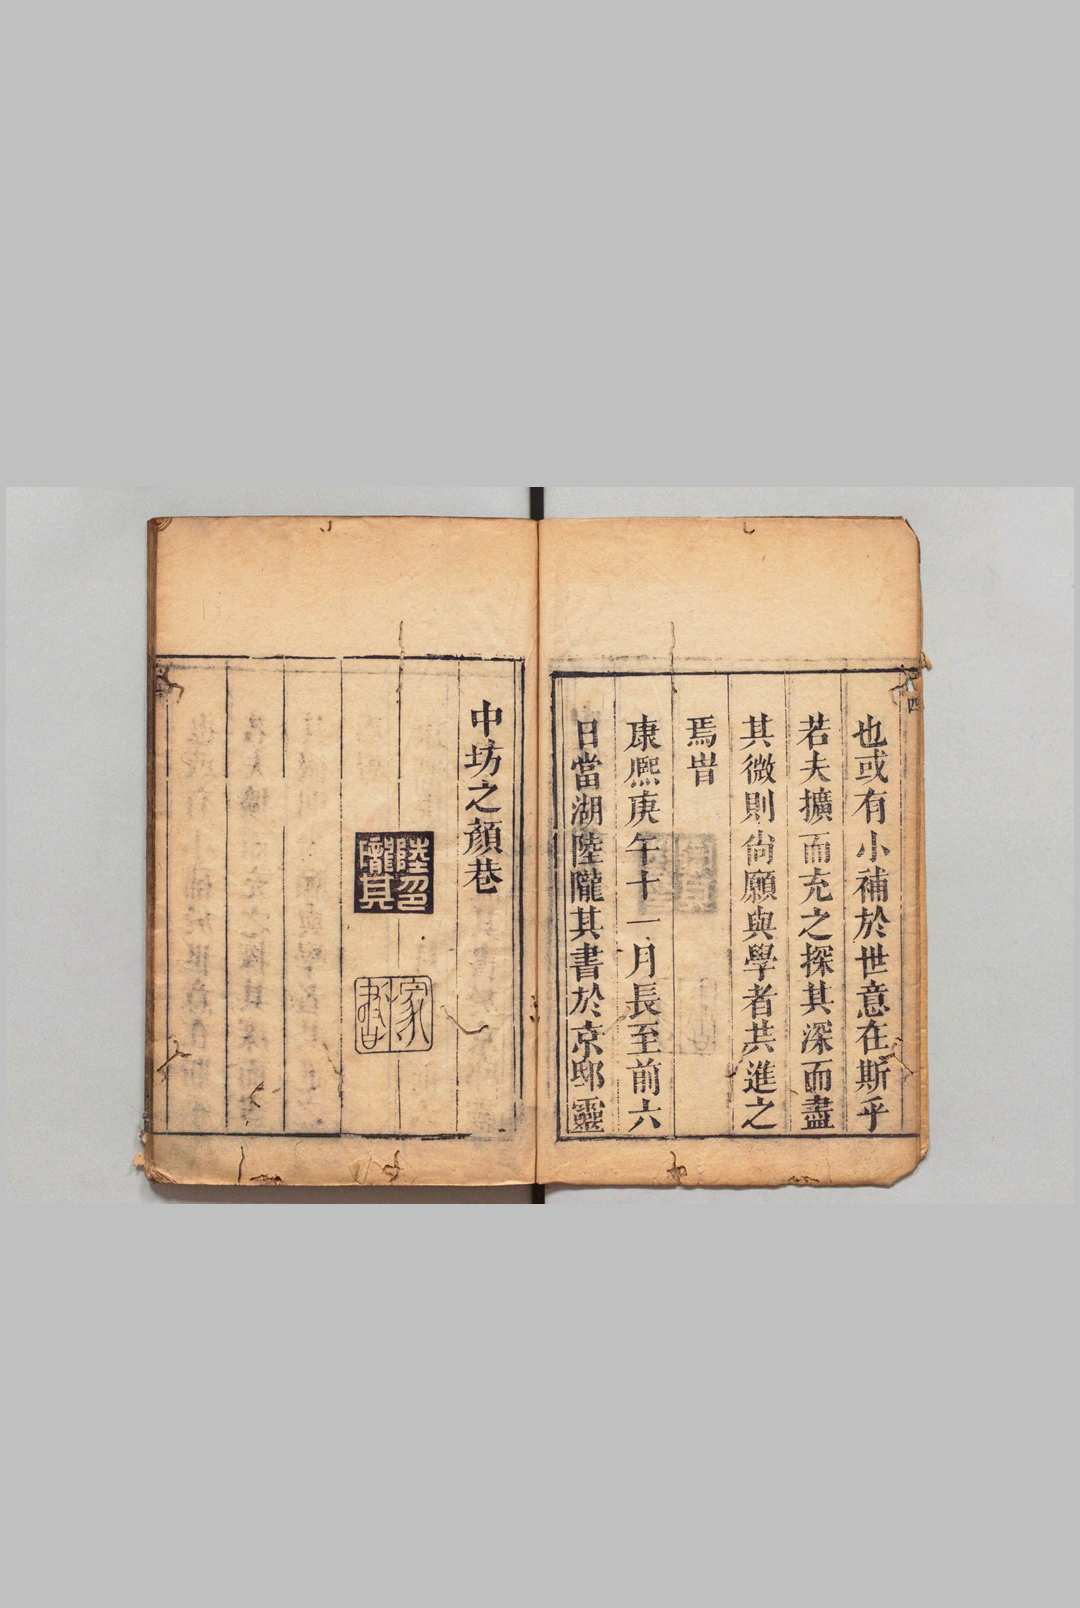 也或有小補於世意在斯乎
若夫擴而充之探其深而盡
其微則尙願與學者共進之
焉旹
康熙庚午十一月長至前六
日當湖陸隴其書於京邸靈
中坊之顏巷
陸隴其印
四